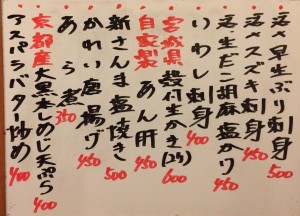 活〆早生ぶり刺身 500
活〆スズキ刺身 450
活・生だこ胡麻塩かり 450
いわし刺身 400
宮城県 殻付生かき(2ケ) 600
自家製 あん肝 450
新さんま塩焼き 500
かれい唐揚げ 450
あら煮 350
京都産 大黒本しめじ天ぷら 400
アスパラバター炒め 400